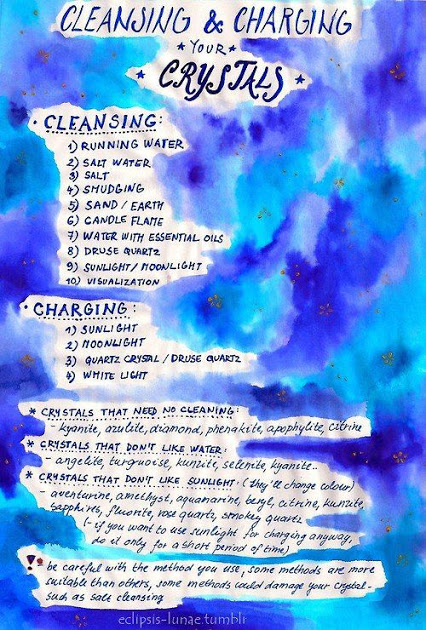 CLEANSING & CHARGING
*YOUR*
*CRYSTALS*
· CLEANSING:
1) RUNNING WATER
2) SALT WATER
3) SALT
4) SMUDGING
5) SAND / EARTH
6) CANDLE FLAME
7) WATER WITH ESSENTIAL OILS
8) DRUSE QUARTZ
9) SUNLIGHT/MOONLIGHT
10) VISUALIZATION
· CHARGING:
1) SUNLIGHT
2) MOONLIGHT
3) QUARTZ CRYSTAL / DRUSE QUARTZ
4) WHITE LIGHT
* CRYSTALS THAT NEED NO CLEANING:
- kyanite, azulite, diamond, phenakite, apophylite, citrine
* CRYSTALS THAT DON'T LIKE WATER:
- angelite, turquoise, kunzite, selenite, kyanite..
* CRYSTALS THAT DON'T LIKE SUNLIGHT: (they'll change colour)
- aventurine, amethyst, aquamarine, beryl, citrine, kunzite,
sapphires, fluorite, rose quartz, smokey quartz
(- if you want to use sunlight for charging anyway,
do it only for a short period of time)
!! be careful with the method you use, some methods are more
suitable than others, some methods could damage your crystal -
such as salt cleansing
eclipsis-lunae.tumblr